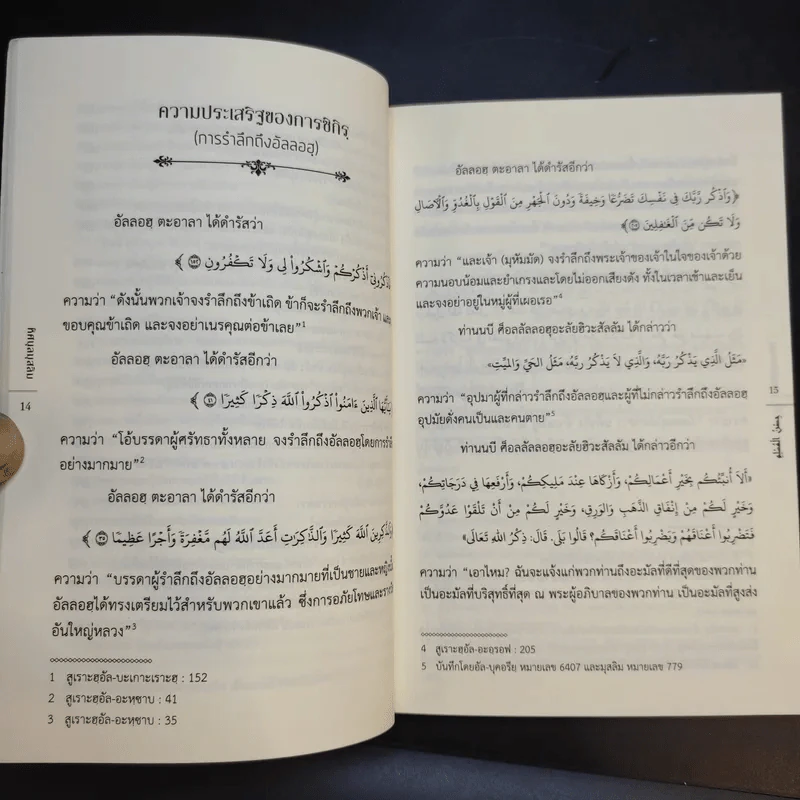 ความประเสริฐของการซิกิรฺ
(การรำลึกถึงอัลลอฮฺ)
อัลลอฮฺ ตะอาลา ได้ดำรัสว่า
أَذْكُرْكُمْ وَٱشْكُرُوا۟ لِى وَلَا تَكْفُرُونِ ﴿١٥٢﴾
ความว่า “ดังนั้นพวกเจ้าจงรำลึกถึงข้าเถิด ข้าก็จะรำลึกถึงพวกเจ้า และ
ขอบคุณข้าเถิด และจงอย่าเนรคุณต่อข้าเลย”1
อัลลอฮฺ ตะอาลา ได้ดำรัสอีกว่า
ٱلَّذِينَ ءَامَنُوا۟ ٱذْكُرُوا۟ ٱللَّهَ ذِكْرًا كَثِيرًا ﴿٤١﴾
ความว่า “โอ้บรรดาผู้ศรัทธาทั้งหลาย จงรำลึกถึงอัลลอฮฺโดยการรำลึก
อย่างมากมาย”2
อัลลอฮฺ ตะอาลา ได้ดำรัสอีกว่า
ٱللَّهَ كَثِيرًا وَٱلذَّٰكِرَٰتِ أَعَدَّ ٱللَّهُ لَهُم مَّغْفِرَةً وَأَجْرًا عَظِيمًا ﴿٣٥﴾
ความว่า “บรรดาผู้รำลึกถึงอัลลอฮฺอย่างมากมายที่เป็นชายและหญิงนั้น
อัลลอฮฺได้ทรงเตรียมไว้สำหรับพวกเขาแล้ว ซึ่งการอภัยโทษและรางวัล
อันใหญ่หลวง”3
1 สูเราะฮฺอัล-บะเกาะเราะฮฺ : 152
2 สูเราะฮฺอัล-อะหฺซาบ : 41
3 สูเราะฮฺอัล-อะหฺซาบ : 35
14
อัลลอฮฺ ตะอาลา ได้ดำรัสอีกว่า
﴿وَٱذْكُر رَّبَّكَ فِى نَفْسِكَ تَضَرُّعًا وَخِيفَةً وَدُونَ ٱلْجَهْرِ مِنَ ٱلْقَوْلِ بِٱلْغُدُوِّ وَٱلْءَاصَالِ
وَلَا تَكُن مِّنَ ٱلْغَٰفِلِينَ ﴿٢٠٥﴾
ความว่า “และเจ้า (มุหัมมัด) จงรำลึกถึงพระเจ้าของเจ้าในใจของเจ้าด้วย
ความนอบน้อมและยำเกรงและโดยไม่ออกเสียงดัง ทั้งในเวลาเช้าและเย็น
และจงอย่าอยู่ในหมู่ผู้ที่เผอเรอ”4
ท่านนบี ศ็อลลัลลอฮุอะลัยฮิวะสัลลัม ได้กล่าวว่า
«مَثَلُ الَّذِي يَذْكُرُ رَبَّهُ، وَالَّذِي لَا يَذْكُرُ رَبَّهُ، مَثَلُ الحَيِّ وَالمَيِّتِ»
ความว่า “อุปมาผู้ที่กล่าวรำลึกถึงอัลลอฮฺและผู้ที่ไม่กล่าวรำลึกถึงอัลลอฮฺ
อุปมัยดั่งคนเป็นและคนตาย”5
ท่านนบี ศ็อลลัลลอฮุอะลัยฮิวะสัลลัม ได้กล่าวอีกว่า
«أَلَا أُنَبِّئُكُمْ بِخَيْرِ أَعْمَالِكُمْ، وَأَزْكَاهَا عِنْدَ مَلِيكِكُمْ، وَأَرْفَعِهَا فِي دَرَجَاتِكُمْ،
وَخَيْرٌ لَكُمْ مِنْ إِنْفَاقِ الذَّهَبِ وَالوَرِقِ، وَخَيْرٌ لَكُمْ مِنْ أَنْ تَلْقَوْا عَدُوَّكُمْ
فَتَضْرِبُوا أَعْنَاقَهُمْ وَيَضْرِبُوا أَعْنَاقَكُمْ؟ قَالُوا بَلَى. قَالَ: ذِكْرُ اللهِ تَعَالَى»
ความว่า “เอาไหม? ฉันจะแจ้งแก่พวกท่านถึงอะมัลที่ดีที่สุดของพวกท่าน
เป็นอะมัลที่บริสุทธิ์ที่สุด ณ พระผู้อภิบาลของพวกท่าน เป็นอะมัลที่สูงส่ง
4 สูเราะฮฺอัล-อะอฺรอฟ : 205
5 บันทึกโดยอัล-บุคอรียฺ หมายเลข 6407 และมุสลิม หมายเลข 779
15